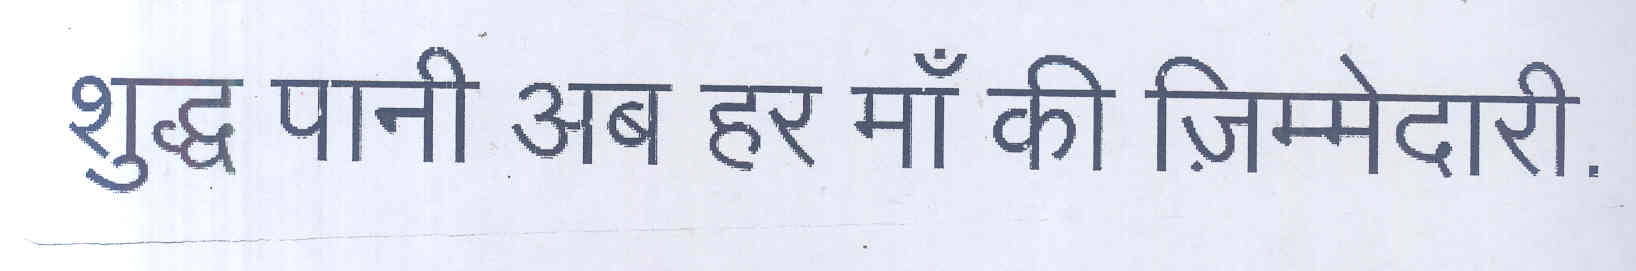 शुद्ध पानी अब हर माँ की ज़िम्मेदारी.